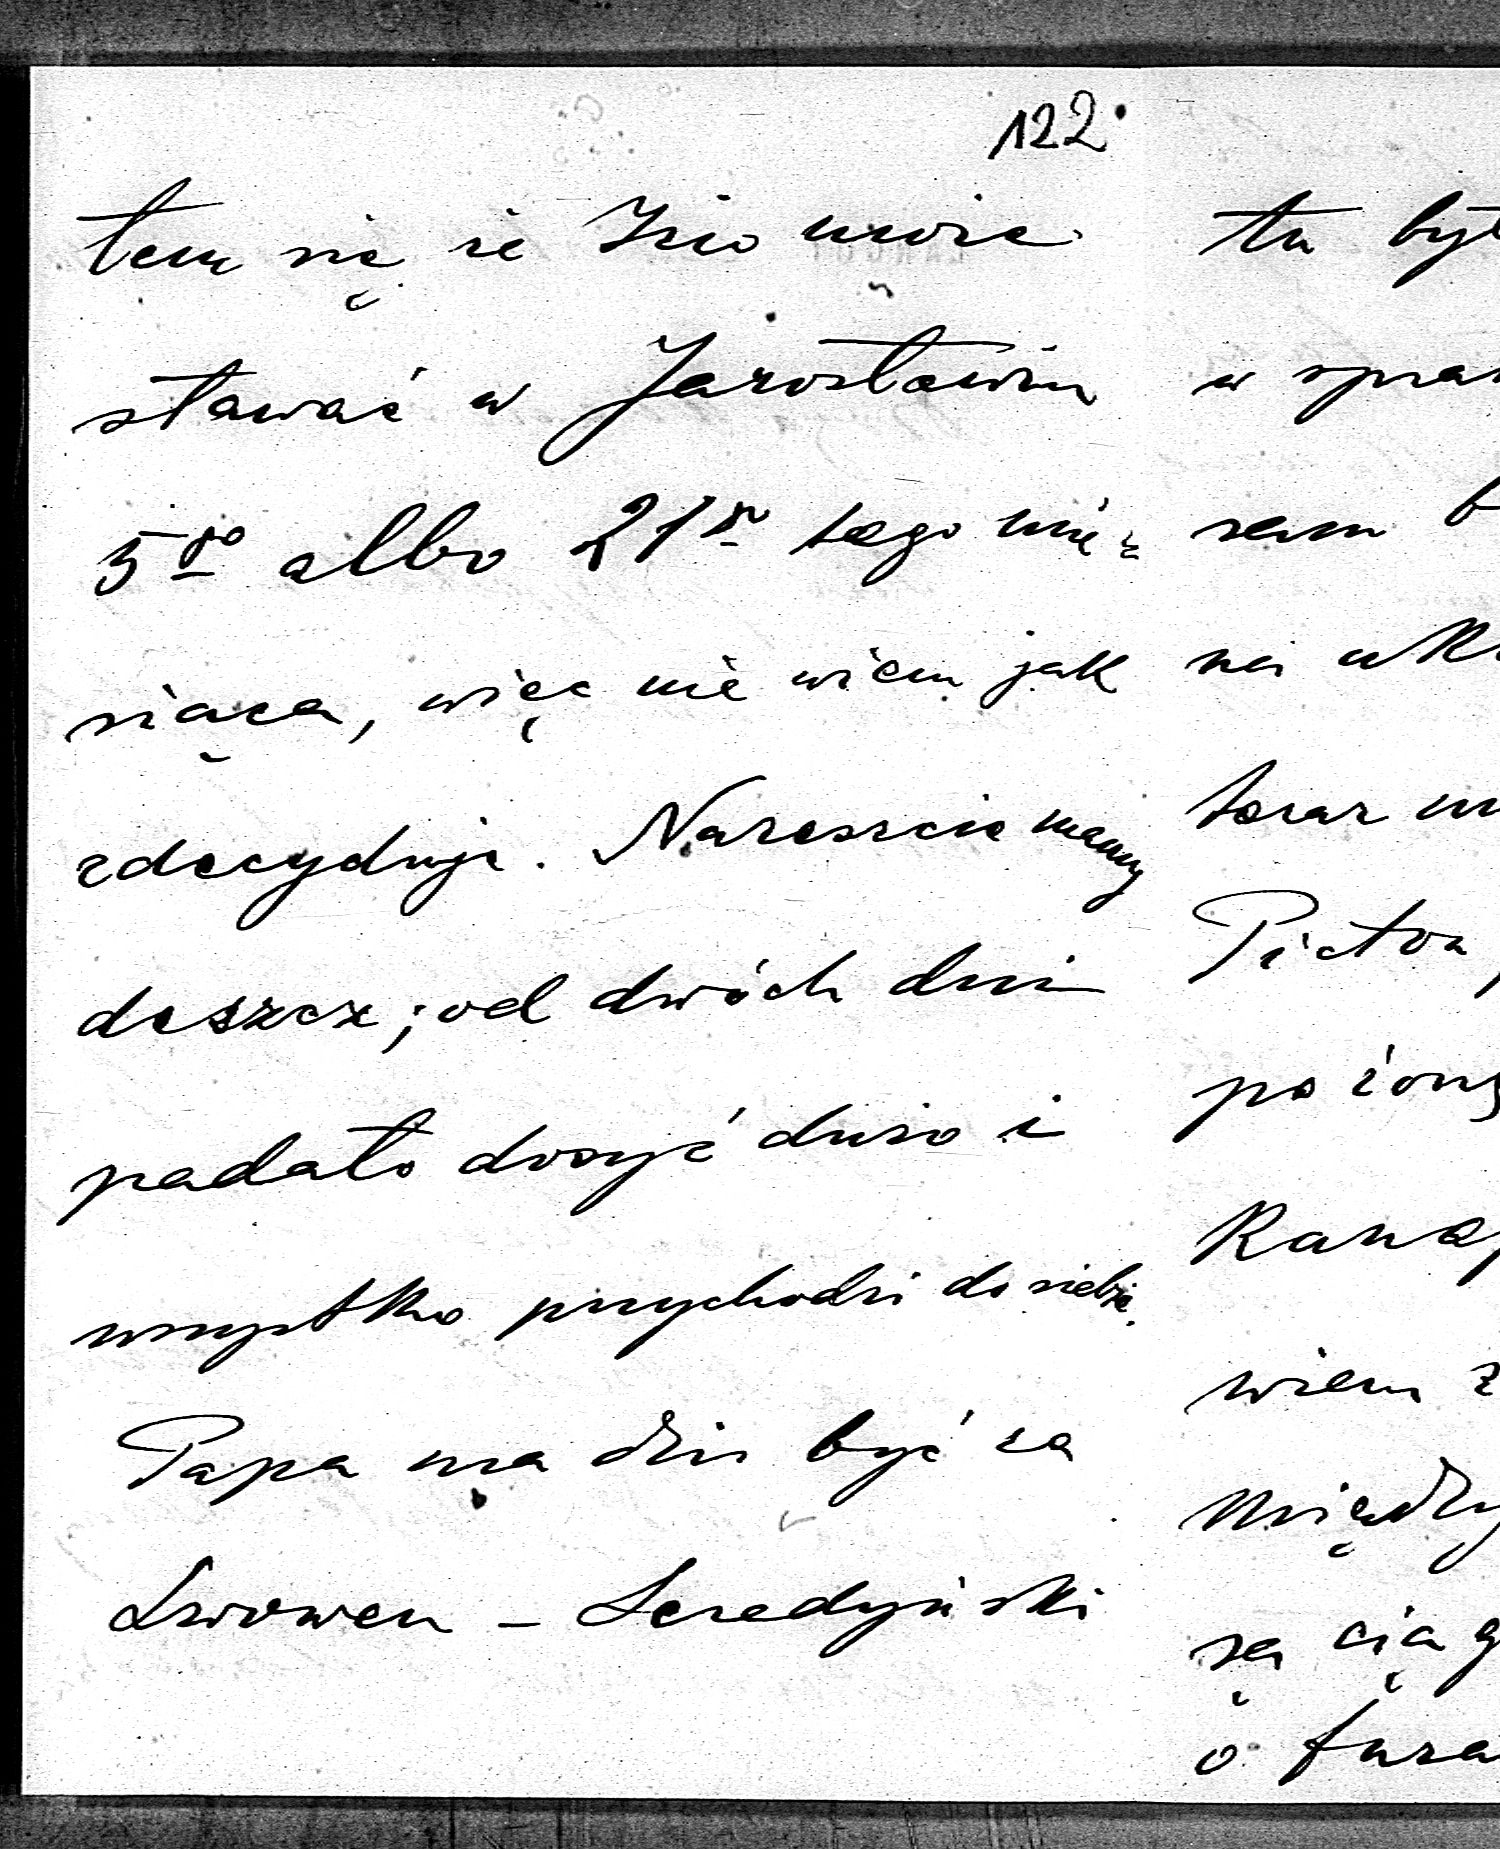 122
tem się że Izio może
stawać w Jarosławiu
5go albo 21go tego mie-
siąca, więc nie wiem jak
zdecyduje. Nareszcie mamy
deszcz; od dwóch dni
padało dosyć dużo i
wszystko przychodzi do siebie.
Papa ma dziś być za
Lwowem – Seredyński
tu był
w spra
sam b
na
teraz
Picton
po żonę
Kana
wiem ż
między
są ciąg
o fura